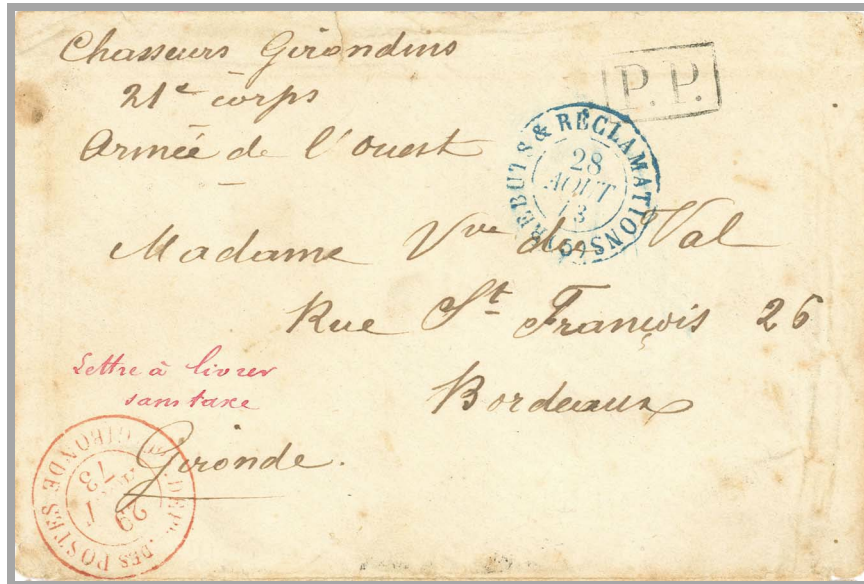 Chasseurs Girondins
21e corps
Armée de l'Ouest
P.P.
REBUTS & RÉCLAMATIONS (5)
28
AOUT
73
Madame Vve du Val
Rue St François 26
Lettre à livrer
sans taxe
Bordeaux
Gironde.
DÉPt. DES POSTES GIRONDE
29
73